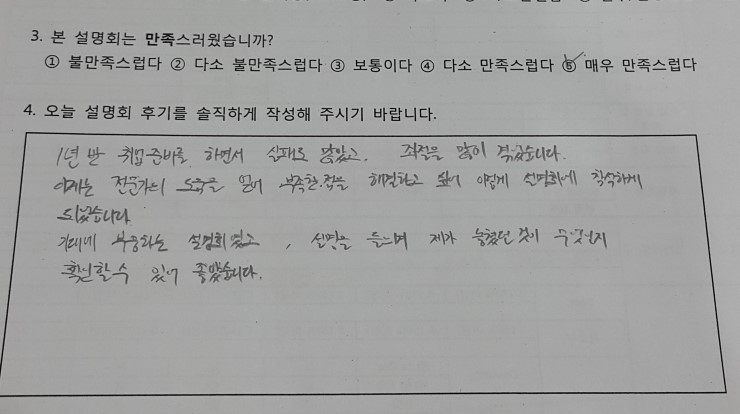 3. 본 설명회는 만족스러웠습니까?
① 불만족스럽다 ② 다소 불만족스럽다 ③ 보통이다 ④ 다소 만족스럽다 ⑤ 매우 만족스럽다
4. 오늘 설명회 후기를 솔직하게 작성해 주시기 바랍니다.
1년 반 취업준비를 하면서 실패도 많았고, 좌절을 많이 겪었습니다.
이제는 전문가의 도움을 얻어 부족한 점을 해결하고 싶어 이렇게 설명회에 참석하게
되었습니다.
기대에 부응하는 설명회였고, 설명을 들으며 제가 놓쳤던 것이 무엇인지
확인할 수 있어 좋았습니다.